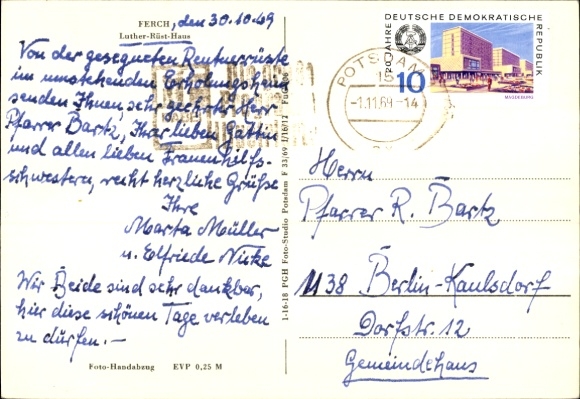 FERCH, den 30.10.69
Luther-Rüst-Haus
Von der gesegneten Rentnerrüste
im umstehenden Erholungsheim
senden Ihnen, sehr geehrter Herr
Pfarrer Bartz, Ihrer lieben Gattin
und allen lieben Frauenhilfs-
schwestern, recht herzliche Grüße
Ihre
Marta Müller
u. Elfriede Nicke
Wir Beide sind sehr dankbar,
hier diese schönen Tage verleben
zu dürfen.—
Foto-Handabzug EVP 0,25 M
1-16-18 PGH Foto-Studio Potsdam F 33/69 1/16/17
DEUTSCHE DEMOKRATISCHE
REPUBLIK
20 JAHRE
10
MAGDEBURG
POTSDAM
-1.11.69-14
Herrn
Pfarrer R. Bartz
1138 Berlin-Kaulsdorf
Dorfstr. 12
Gemeindehaus